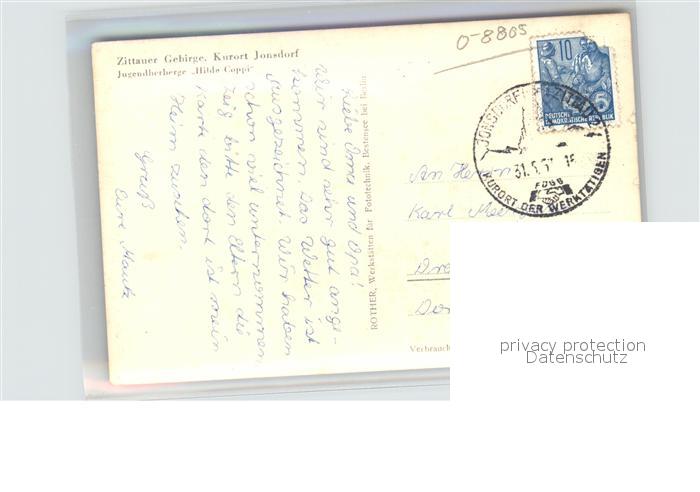 O-8805
Zittauer Gebirge, Kurort Jonsdorf
Jugendherberge „Hilde Coppi"
Liebe Oma und Opa!
Wir sind sehr gut ange-
kommen. Das Wetter ist
ausgezeichnet. Wir haben
schon viel unternommen.
Zeig bitte den Eltern die
Karte den dort ist mein
Heim zusehen.
Gruß
Eure
ROTHER, Werkstätten für Fototechnik, Bestensee bei Berlin
10
DEUTSCHE
DEMOKRATISCHE REPUBLIK
5
JONSDORF
31.5.5
FDGB
KURORT DER WERKTÄTIGEN
An Herrn
Karl
Verbrauch
privacy protection
Datenschutz